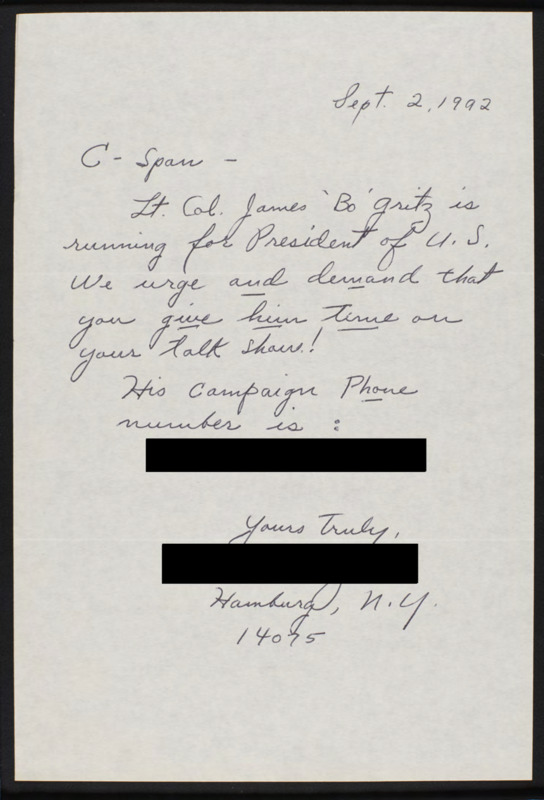 Sept. 2, 1992
C-Span -
Lt. Col. James 'Bo' Gritz is
running for President of U.S.
We urge and demand that
you give him time on
your talk show!
His Campaign Phone
number is :
Yours Truly,
Hamburg, N.Y.
14075